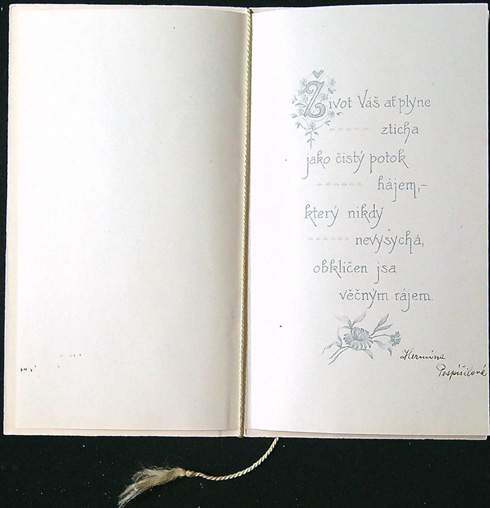 Život Váš ať plyne
zticha
jako čistý potok
hájem,-
který nikdy
nevysychá,
obklíčen jsa
věčným rájem.
Hermína
Pospíšilová